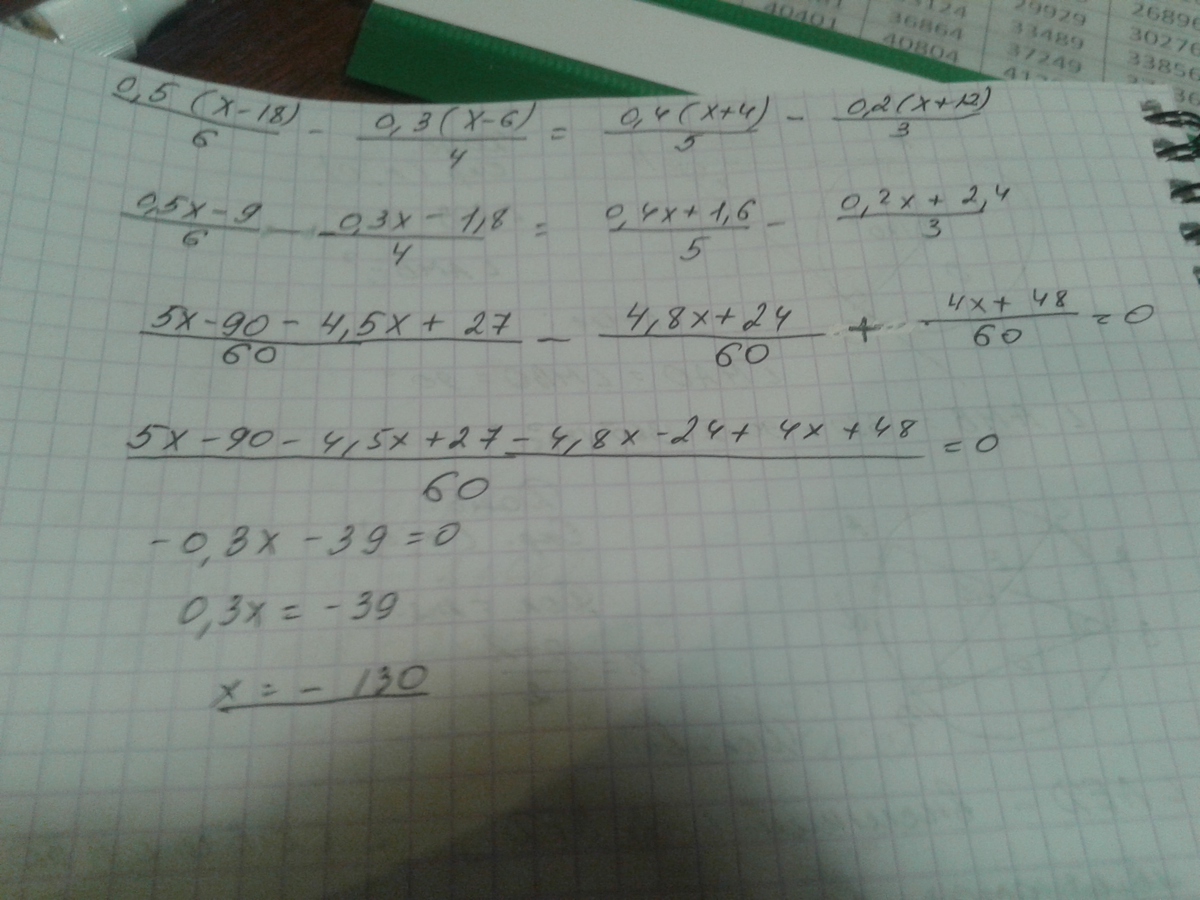 40401 36864 33489 30276
40804 37249 33856
29929 26896
0,5(x-18)/6 - 0,3(x-6)/4 = 0,4(x+4)/5 - 0,2(x+12)/3
0,5x-9/6 - 0,3x-1,8/4 = 0,4x+1,6/5 - 0,2x+2,4/3
5x-90-4,5x+27/60 - 4,8x+24/60 + 4x+48/60 = 0
5x-90-4,5x+27-4,8x-24+4x+48/60 = 0
-0,3x-39=0
0,3x=-39
x=-130